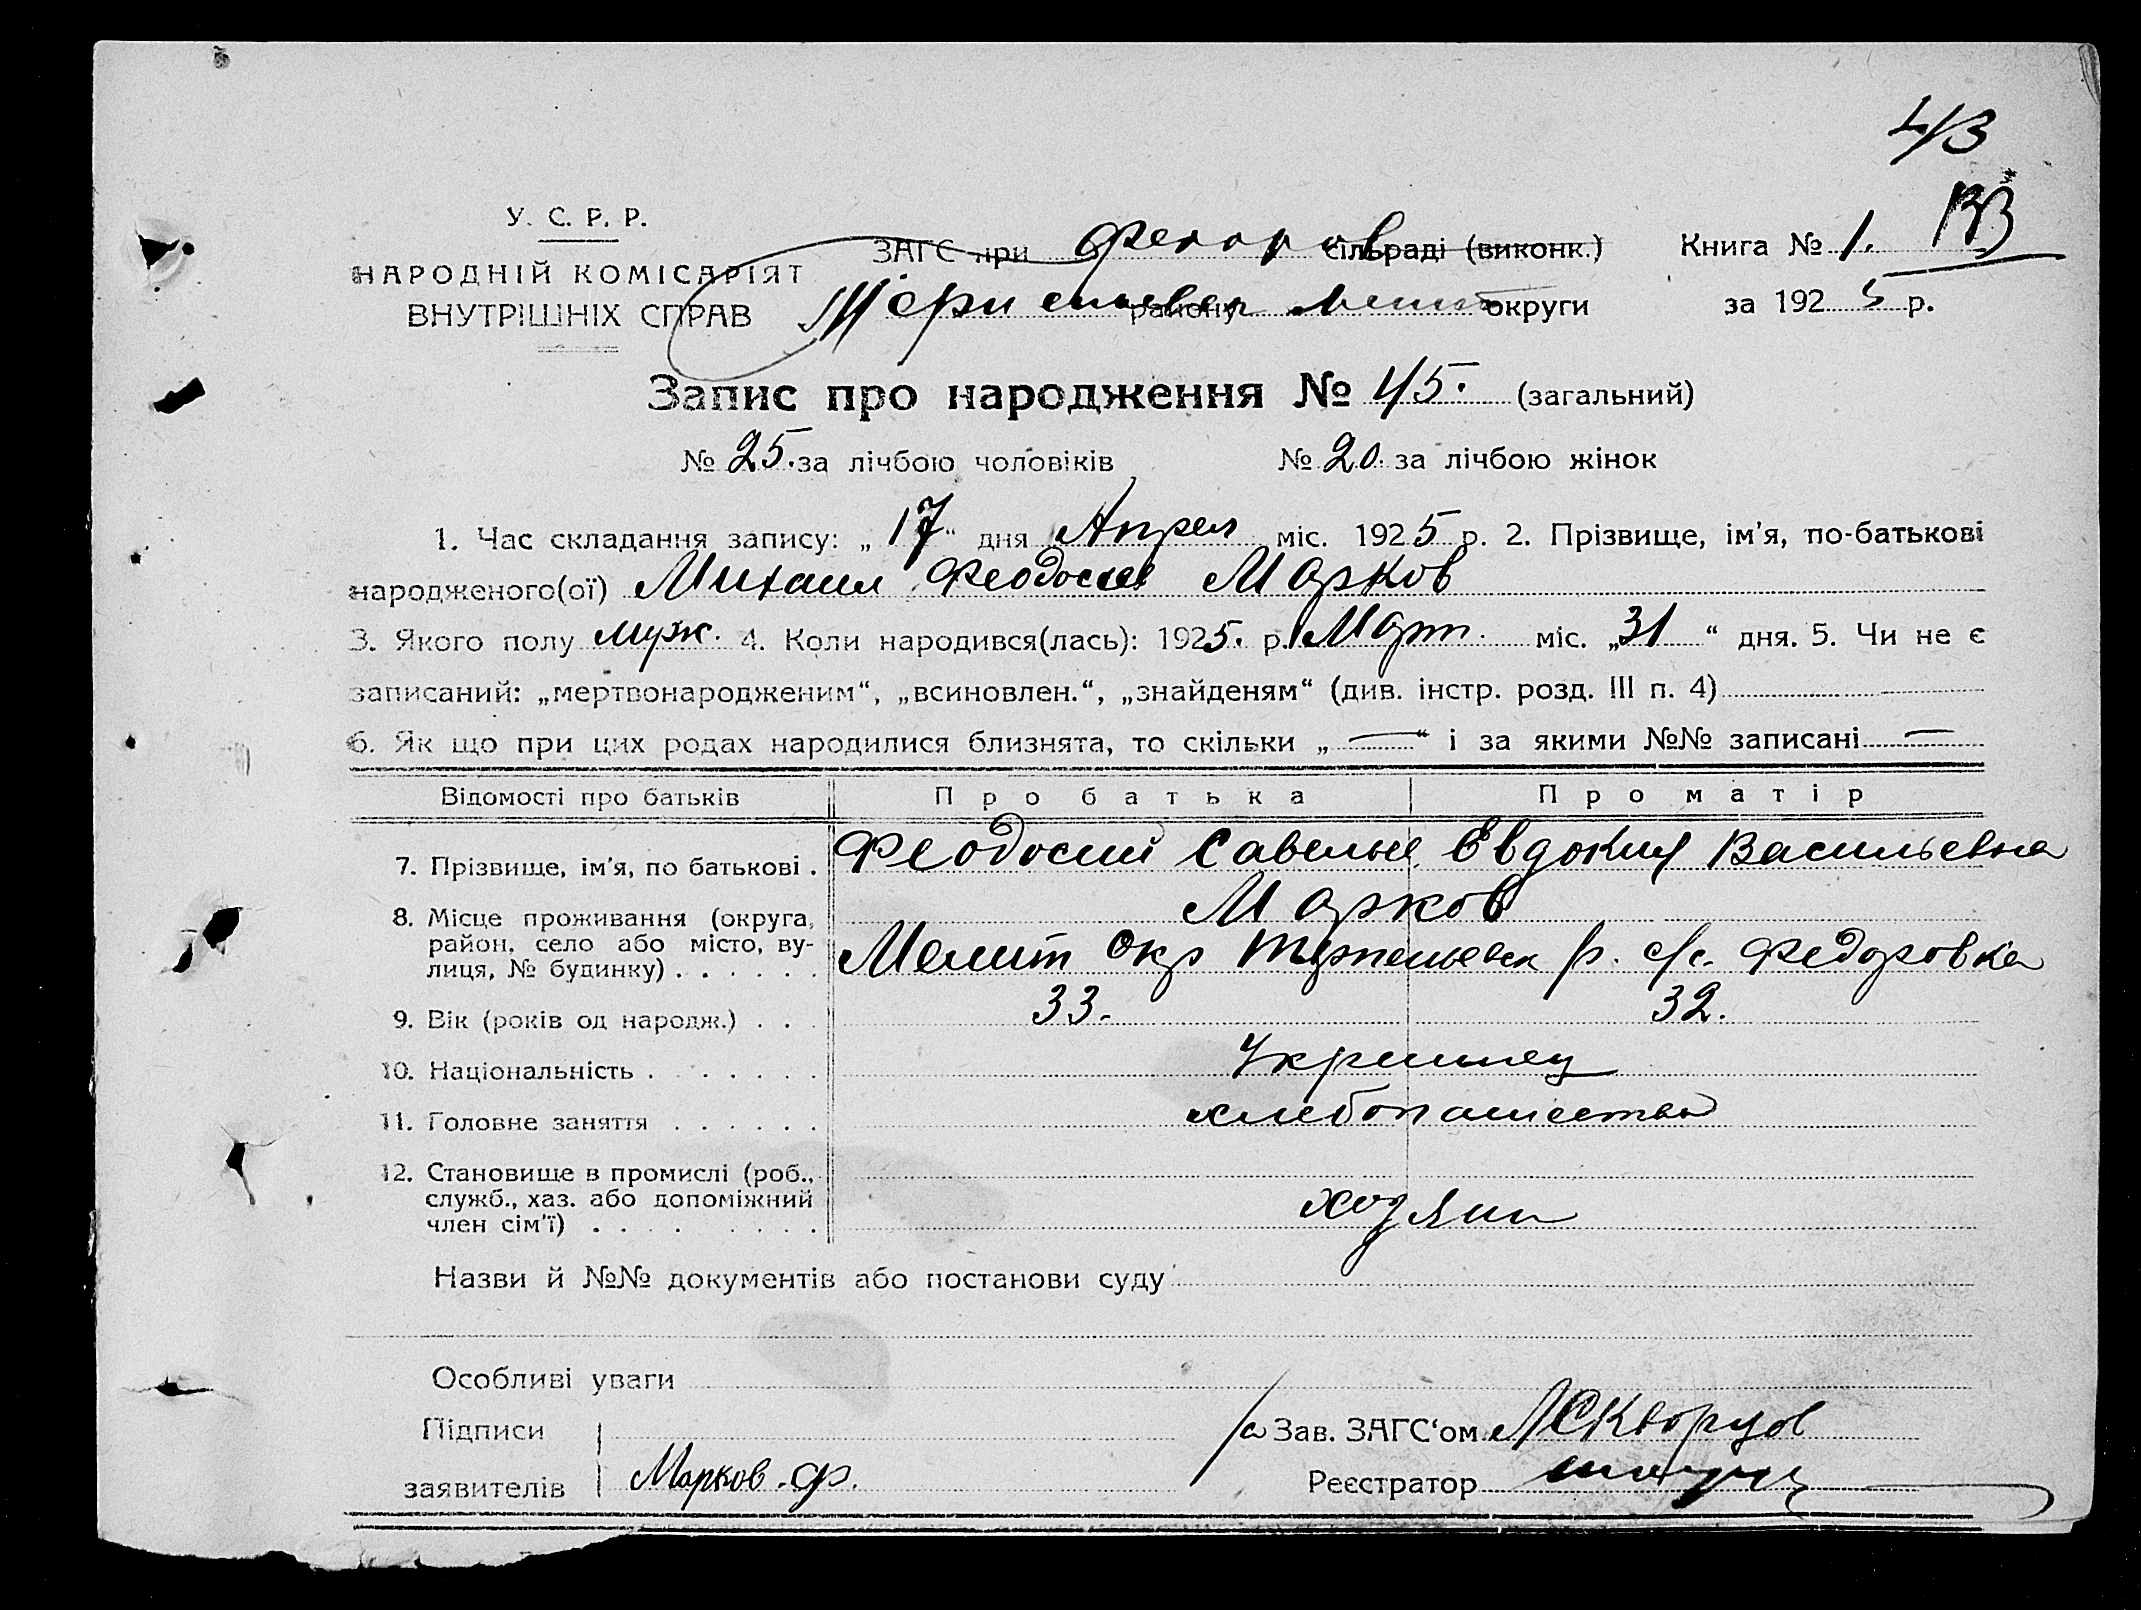 43
133
У. С. Р. Р.
НАРОДНІЙ КОМІСАРІЯТ
ВНУТРІШНІХ СПРАВ
ЗАГС при Федоров сільраді (виконк.) Книга № 1.
району Мелит округи за 1925 р.
Запис про народження № 45. (загальний)
№ 25. за лічбою чоловіків № 20. за лічбою жінок
1. Час складання запису: „17“ дня Апрел міс. 1925 р. 2. Прізвище, ім'я, по-батькові
народженого(ої) Михаил Феодосиев Марков
3. Якого полу муж. 4. Коли народився(лась): 1925. р. Март. міс. „31“ дня. 5. Чи не є
записаний: „мертвонародженим“, „всиновлен.“, „знайденям“ (див. інстр. розд. III п. 4)
6. Як що при цих родах народилися близнята, то скільки „—“ і за якими №№ записані —
Відомості про батьків Про батька Про матір
7. Прізвище, ім'я, по батькові . Феодосий Савелье Евдокия Васильевна
Марков
8. Місце проживання (округа,
район, село або місто, ву-
лиця, № будинку) . . . . . . Мелит Окр р. с/с. Федоровка
9. Вік (років од народж.) . . . 33. 32.
10. Національність . . . . . . . Украинец
11. Головне заняття . . . . . . хлебопашество
12. Становище в промислі (роб.,
служб., хаз. або допоміжний
член сім'ї) . . . . . . . . хозяин
Назви й №№ документів або постанови суду
Особливі уваги
Підписи
заявителів Марков. Ф.
Зав. ЗАГС'ом Скворцов
Реєстратор